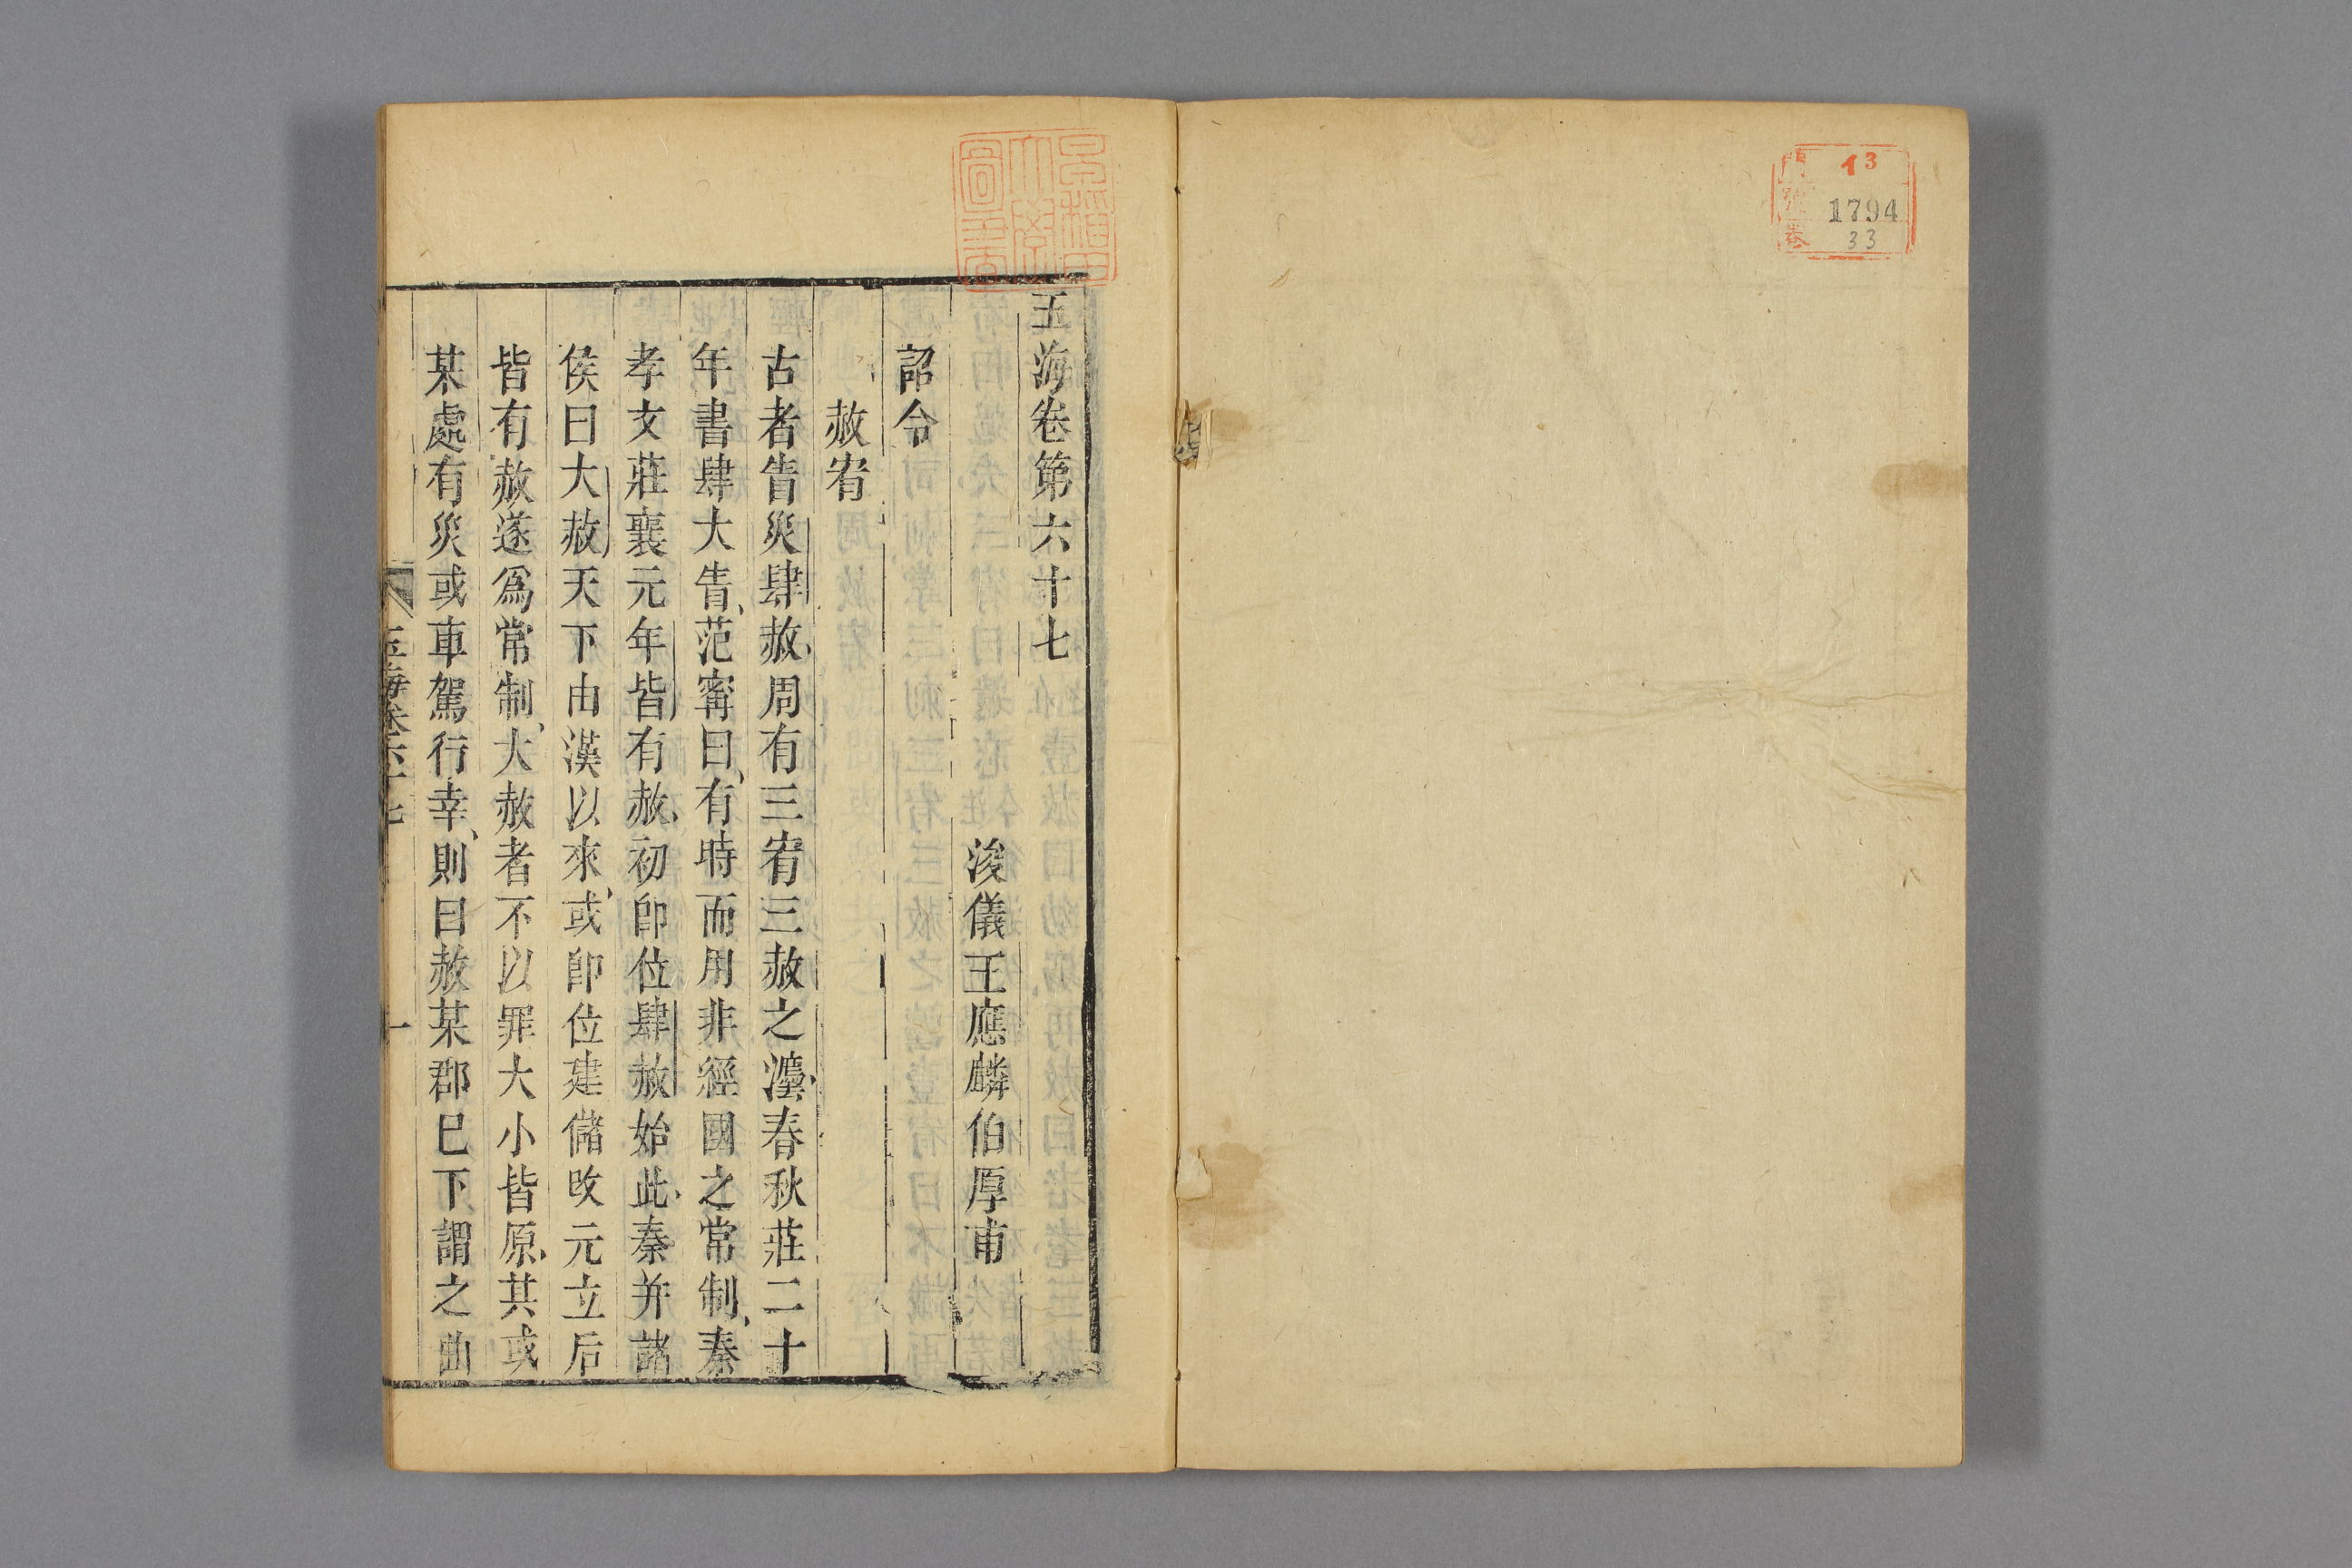 門 イ3
號 1794
卷 33
早稻田
大學
圖書
玉海卷第六十七
浚儀王應麟伯厚甫
詔令
赦宥
古者眚災肆赦周有三宥三赦之灋春秋莊二十
年書肆大眚范甯曰有時而用非經國之常制秦
孝文莊襄元年皆有赦初卽位肆赦始此秦并諸
侯曰大赦天下由漢以來或卽位建儲改元立后
皆有赦遂爲常制大赦者不以罪大小皆原其或
某處有災或車駕行幸則曰赦某郡已下謂之曲
玉海卷六十七
一